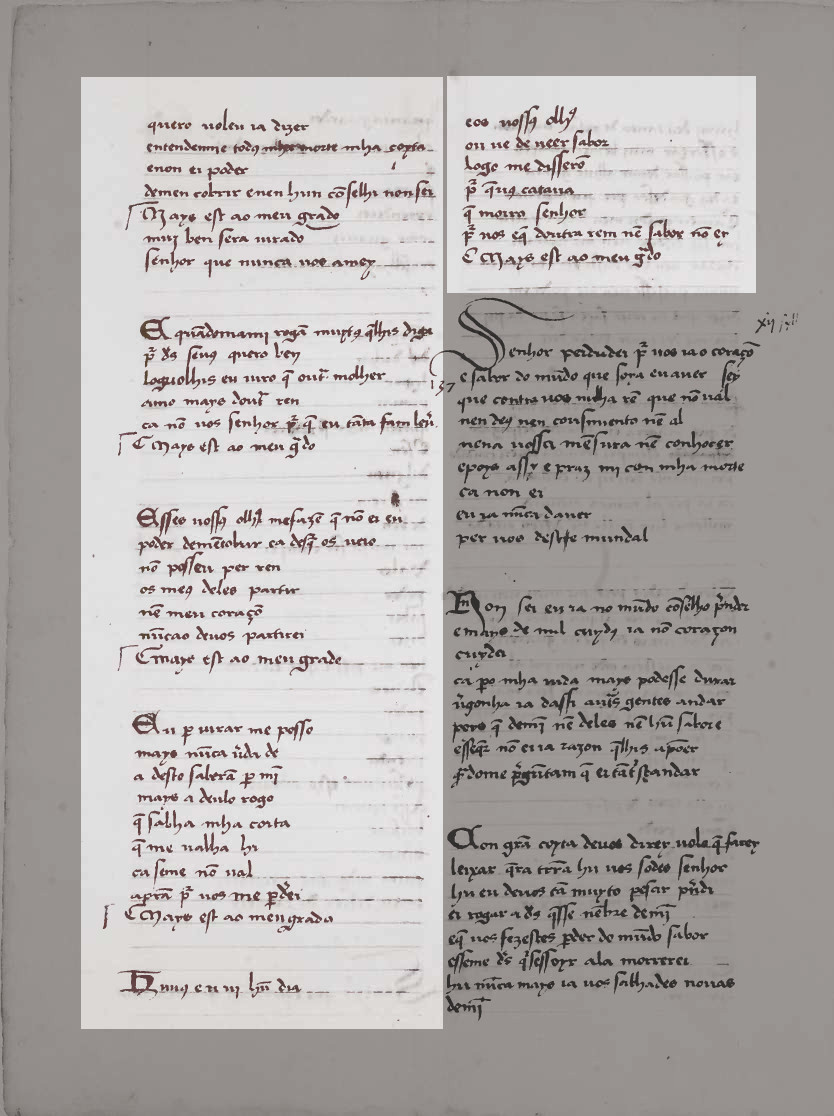 quero uoleu ia dizer
entendenme todꝯ morte mha coyta
enon ei poder
demen cobrir enen hun cõselhi non sei
Mays est ao meu grado
mui ben sera uirado
senhor que nunca uos amey
E quãdomami rogã muytꝯ q̄lhis diga
pr̃ ds̃ senꝯ quero ben
loguolhis eu iuro q̄ outr̃ molher
amo mays doutr̃ ren
ca nõ uos senhor pr̃ q̄ eu tãta
Mays est ao meu gr̃do
Esses uossꝯ olhꝯ mefazẽ q̄ nõ ei eu
poder demẽcobrir ca desq̄ os ueio
nõ posseu per ren
os meꝯ deles partir
nẽ meu coraçõ
nũcao deuos partirei
Mays est ao meu grado
Eu p uirar me posso
mays nũca u̇da de
a desto saberã p mĩ
mays a deulo rogo
q̄ sabha mha coita
q̄ me ualha hi
ca seme nõ ual
aprã pr̃ uos me pd̃ei
Mays est ao meu grado
e u ui hũ dia
eos uossꝯ olhꝯ
ou ue de ueer sabor
logo me disserõ
pr̃ q̄uꝯ cataua
q̄ moiro senhor
pr̃ uos eq̄ doutra rem nẽ sabor nõ ey
Mays est ao meu gr̃do
Senhor perdudei pr̃ uos ia o coraçõ
e sabor do mũdo que soya eu auer
sey
xij
137
que contra uos mha rẽ que nõ ual
nen deꝯ nen cousimento nẽ al
nena uossa mẽsura nẽ conhocer
epoys assy e praz mi con mha morte
ca non ei
eu ia nũca dauer
per uos deste mundal
Non sei eu ia no mũdo cõselho pr̃nder
e mays de mil cuydꝯ ia nõ coraçon
cuydei
ca po mha uida mays podesse durar
u̇gonha ia dassi gentes andar
pero q̄ demĩ nẽ deles nẽ hũ sabor e
nõ ei ia razon q̄lhis apoer
dome pr̃gũtam q̄ ei
Con grã coyta deuos dizer uolo q̄ farey
leixar q̄ra trr̃a hu uos sodes senhor
hu eu deuos tã muyto pesar pr̃di
ei rogar a ds̃ q̄sse nẽbre demĩ
eq̄ uos fezestes pder do mũdo sabor
esseme ds̃ q̄sesseoyr ala morrerei
hu nũca mays ia uos sabhades nouas
demĩ